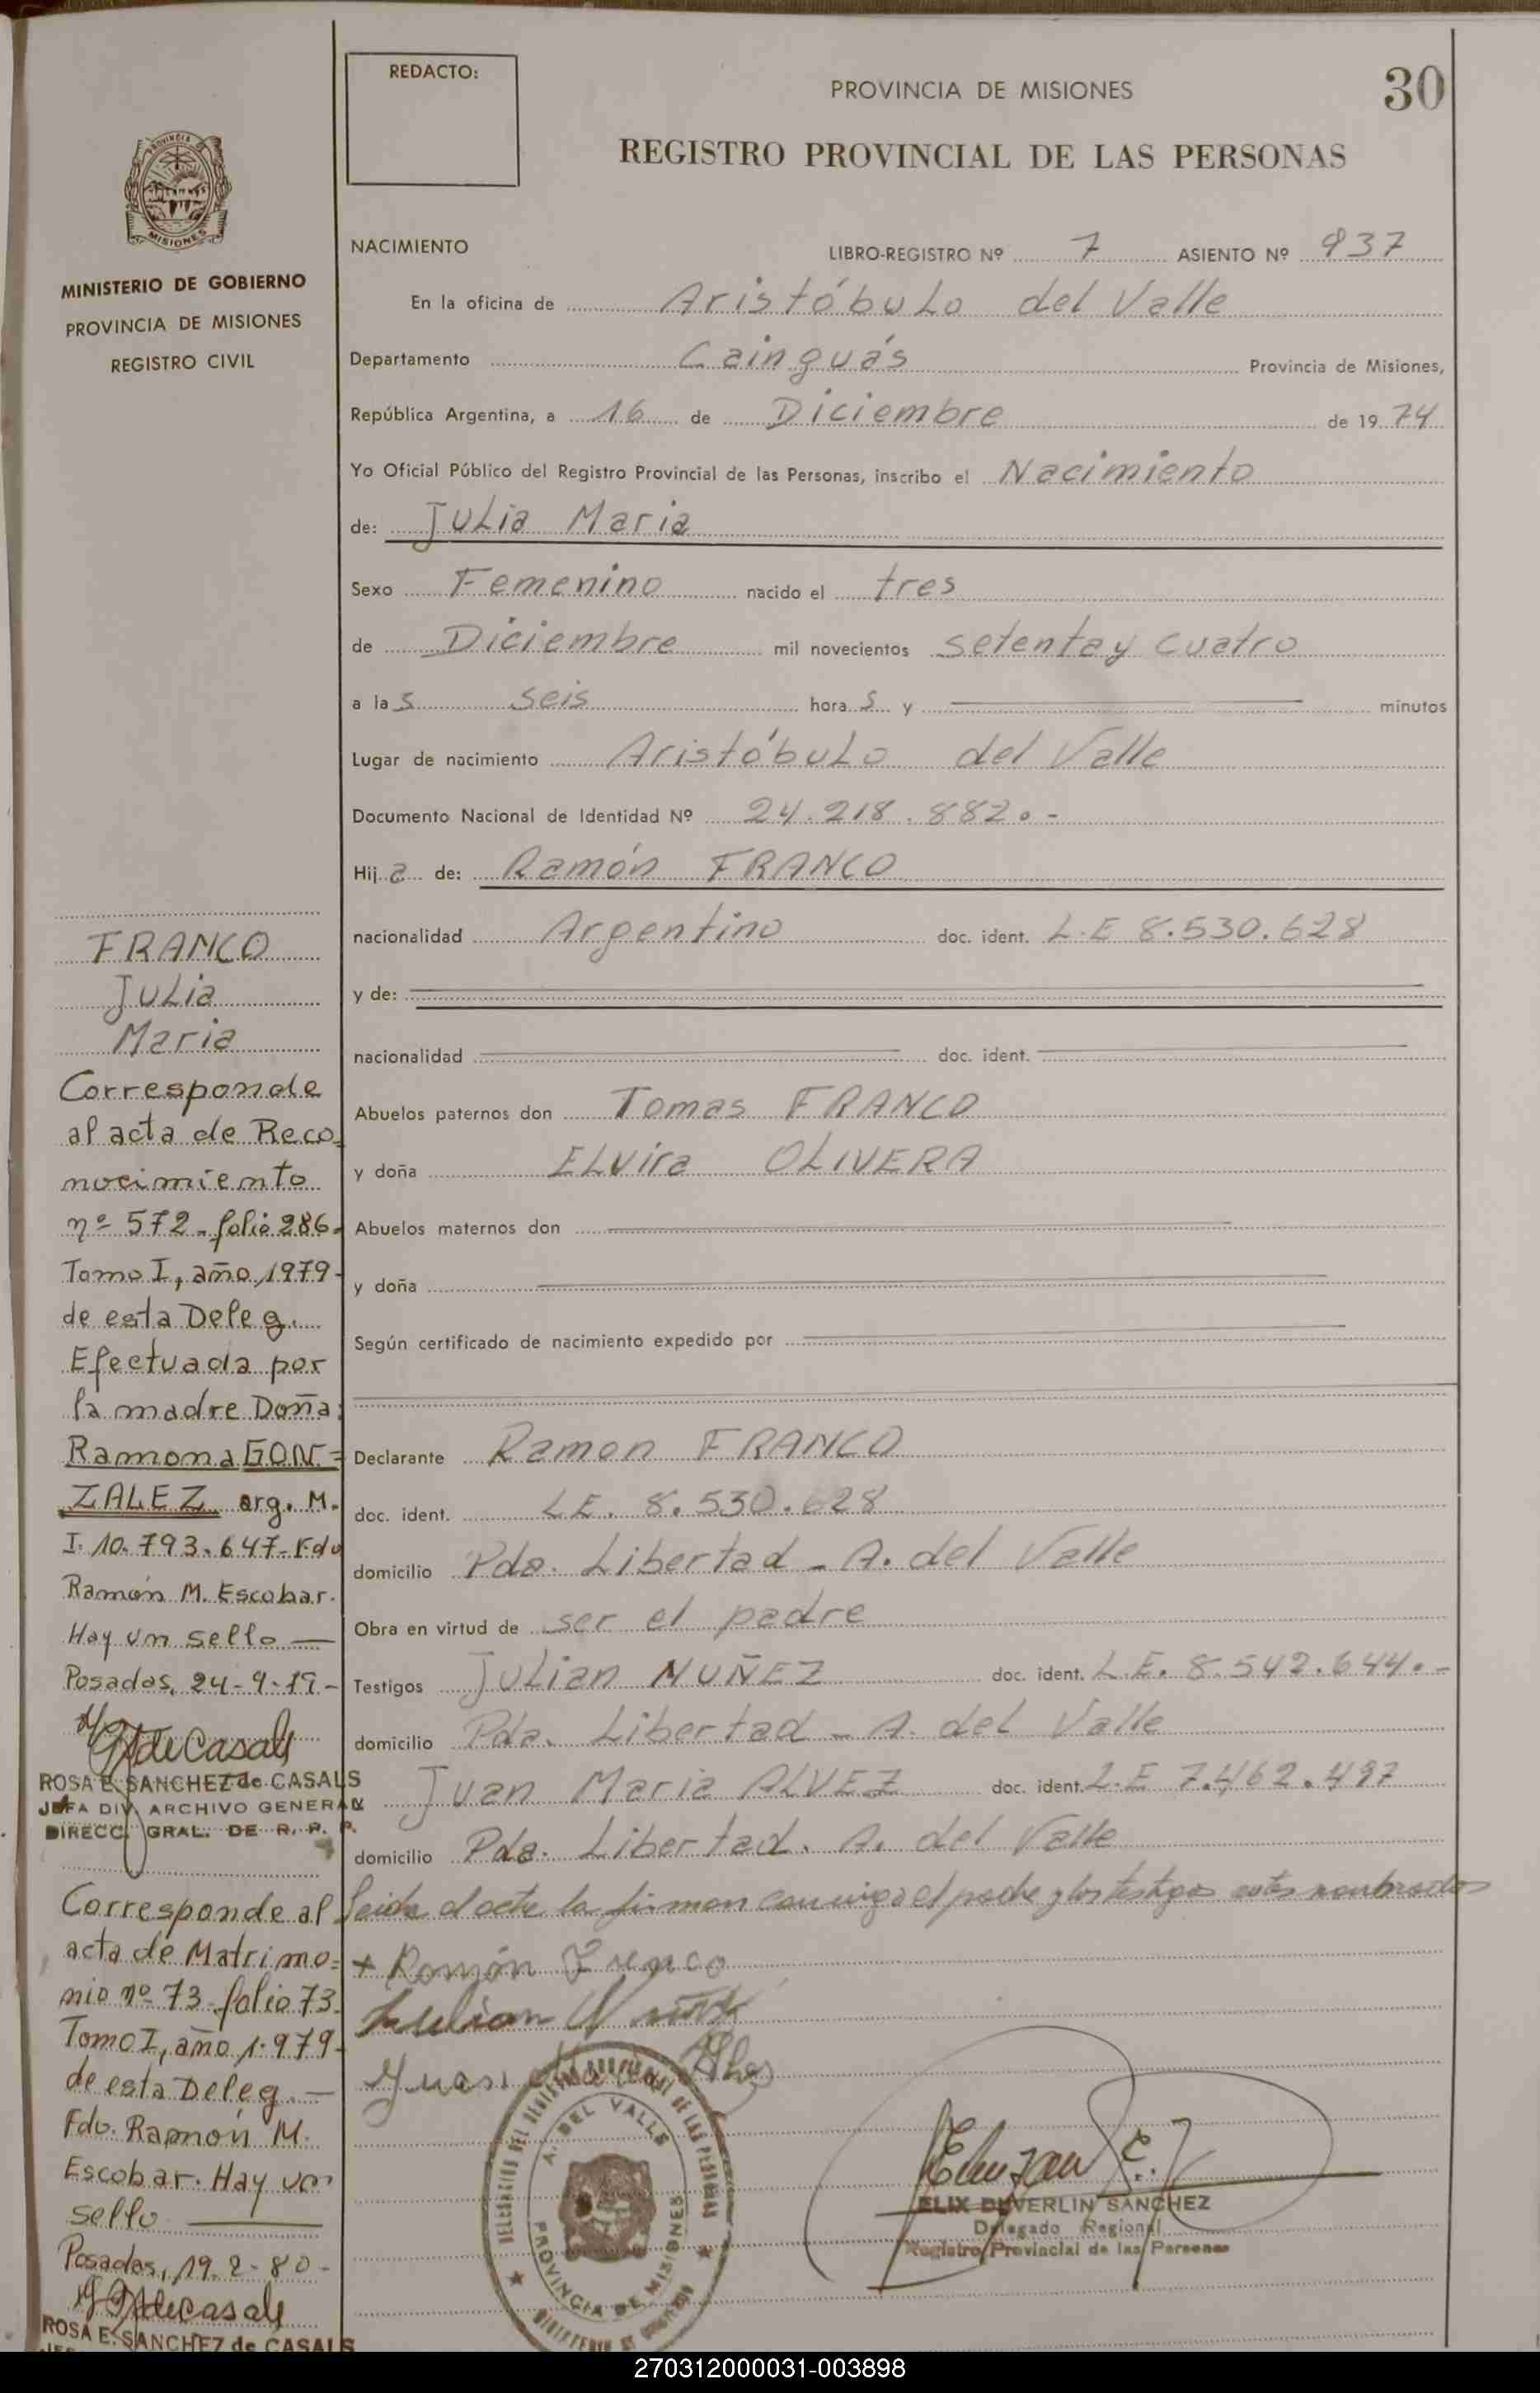 REDACTO:
PROVINCIA DE MISIONES
30
REGISTRO PROVINCIAL DE LAS PERSONAS
PROVINCIA
MISIONES
MINISTERIO DE GOBIERNO
PROVINCIA DE MISIONES
REGISTRO CIVIL
NACIMIENTO
LIBRO-REGISTRO Nº 7 ASIENTO Nº 937
En la oficina de Aristóbulo del Valle
Departamento Cainguás Provincia de Misiones,
República Argentina, a 16 de Diciembre de 1974
Yo Oficial Público del Registro Provincial de las Personas, inscribo el Nacimiento
de: Julia Maria
Sexo Femenino nacido el tres
de Diciembre mil novecientos setenta y cuatro
a las seis horas y minutos
Lugar de nacimiento Aristóbulo del Valle
Documento Nacional de Identidad Nº 24.218.882.-
Hija de: Ramón FRANCO
nacionalidad Argentino doc. ident. L.E 8.530.628
y de:
nacionalidad doc. ident.
Abuelos paternos don Tomas FRANCO
y doña Elvira OLIVERA
Abuelos maternos don
y doña
Según certificado de nacimiento expedido por
Declarante Ramon FRANCO
doc. ident. L.E. 8.530.628
domicilio Pda. Libertad - A. del Valle
Obra en virtud de ser el padre
Testigos Julian NUÑEZ doc. ident. L.E. 8.542.644.-
domicilio Pda. Libertad - A. del Valle
Juan Maria ALVEZ doc. ident. L.E 7.462.497
domicilio Pda. Libertad. A. del Valle
Leida el acta la firman conmigo el padre y los testigos antes nombrados
+ Ramón Franco
Julian Nuñez
Juan Alvez
DELEGACION DEL REGISTRO PROVINCIAL DE LAS PERSONAS
A. DEL VALLE
PROVINCIA DE MISIONES
MINISTERIO DE GOBIERNO
ELIX DUVERLIN SANCHEZ
Delegado Regional
Registro Provincial de las Personas
FRANCO
Julia
Maria
Corresponde
al acta de Reco
nocimiento
nº 572 - folio 286.
Tomo I, año 1979-
de esta Deleg.
Efectuada por
la madre Doña:
Ramona GON=
ZALEZ arg. M.
I. 10.793.647-Fdo
Ramón M. Escobar.
Hay un sello —
Posadas, 24-9-79-
ROSA E. SANCHEZ de CASALS
JEFA DIV. ARCHIVO GENERAL
DIRECC. GRAL. DE R. P. P.
Corresponde al
acta de Matrimo=
nio nº 73 folio 73.
Tomo I, año 1.979-
de esta Deleg. —
Fdo. Ramón M.
Escobar. Hay un
sello
Posadas, 19-2-80-
ROSA E. SANCHEZ de CASALS
270312000031-003898